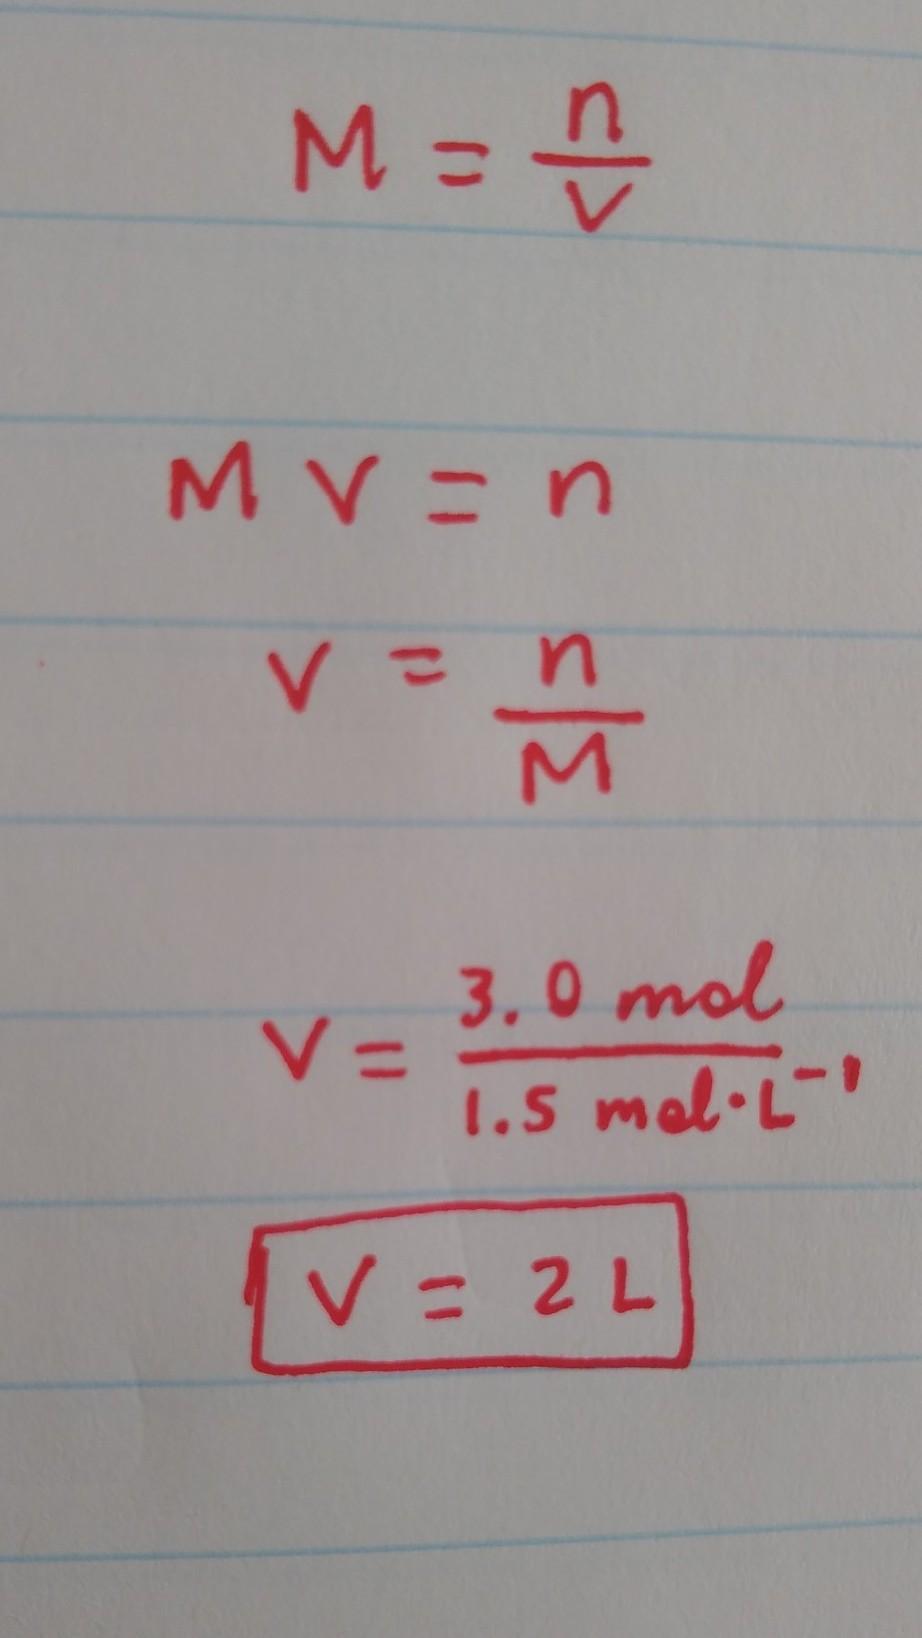 M = n/V
M V = n
V = n/M
V = 3.0 mol / 1.5 mol·L⁻¹
V = 2 L